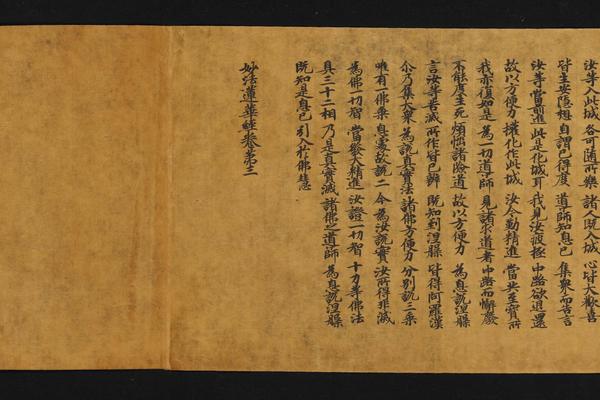 汝等入此城 各可隨所樂 諸人既入城 心皆大歡喜
皆生安隱想 自謂已得度 導師知息已 集衆而告言
汝等當前進 此是化城耳 我見汝疲極 中路欲退還
故以方便力 權化作此城 汝今勤精進 當共至寶所
我亦復如是 爲一切導師 見諸求道者 中路而懈廢
不能度生死 煩惱諸險道 故以方便力 爲息說涅槃
言汝等苦滅 所作皆已辦 既知到涅槃 皆得阿羅漢
尒乃集大衆 爲說真實法 諸佛方便力 分別說三乘
唯有一佛乘 息處故說二 今爲汝說實 汝所得非滅
爲佛一切智 當發大精進 汝證一切智 十力等佛法
具三十二相 乃是真實滅 諸佛之導師 爲息說涅槃
既知是息已 引入於佛慧
妙法蓮華經卷第三